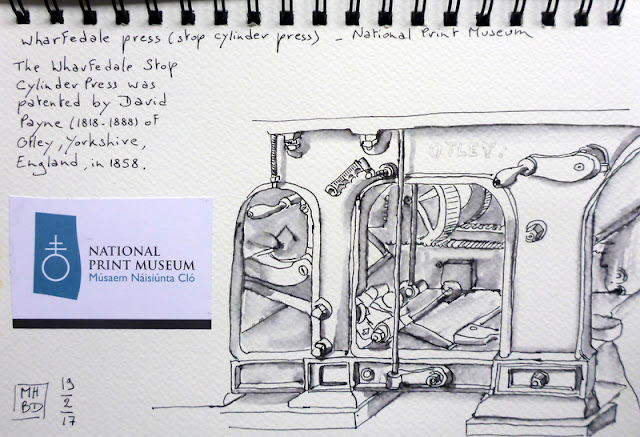 Wharfedale press (stop cylinder press) - National Print Museum
The Wharfedale Stop
Cylinder Press was
patented by David
Payne (1818-1888) of
Otley, Yorkshire,
England, in 1858.
OTLEY.
NATIONAL
PRINT MUSEUM
Músaem Náisiúnta Cló
MH
BD
19
2
17